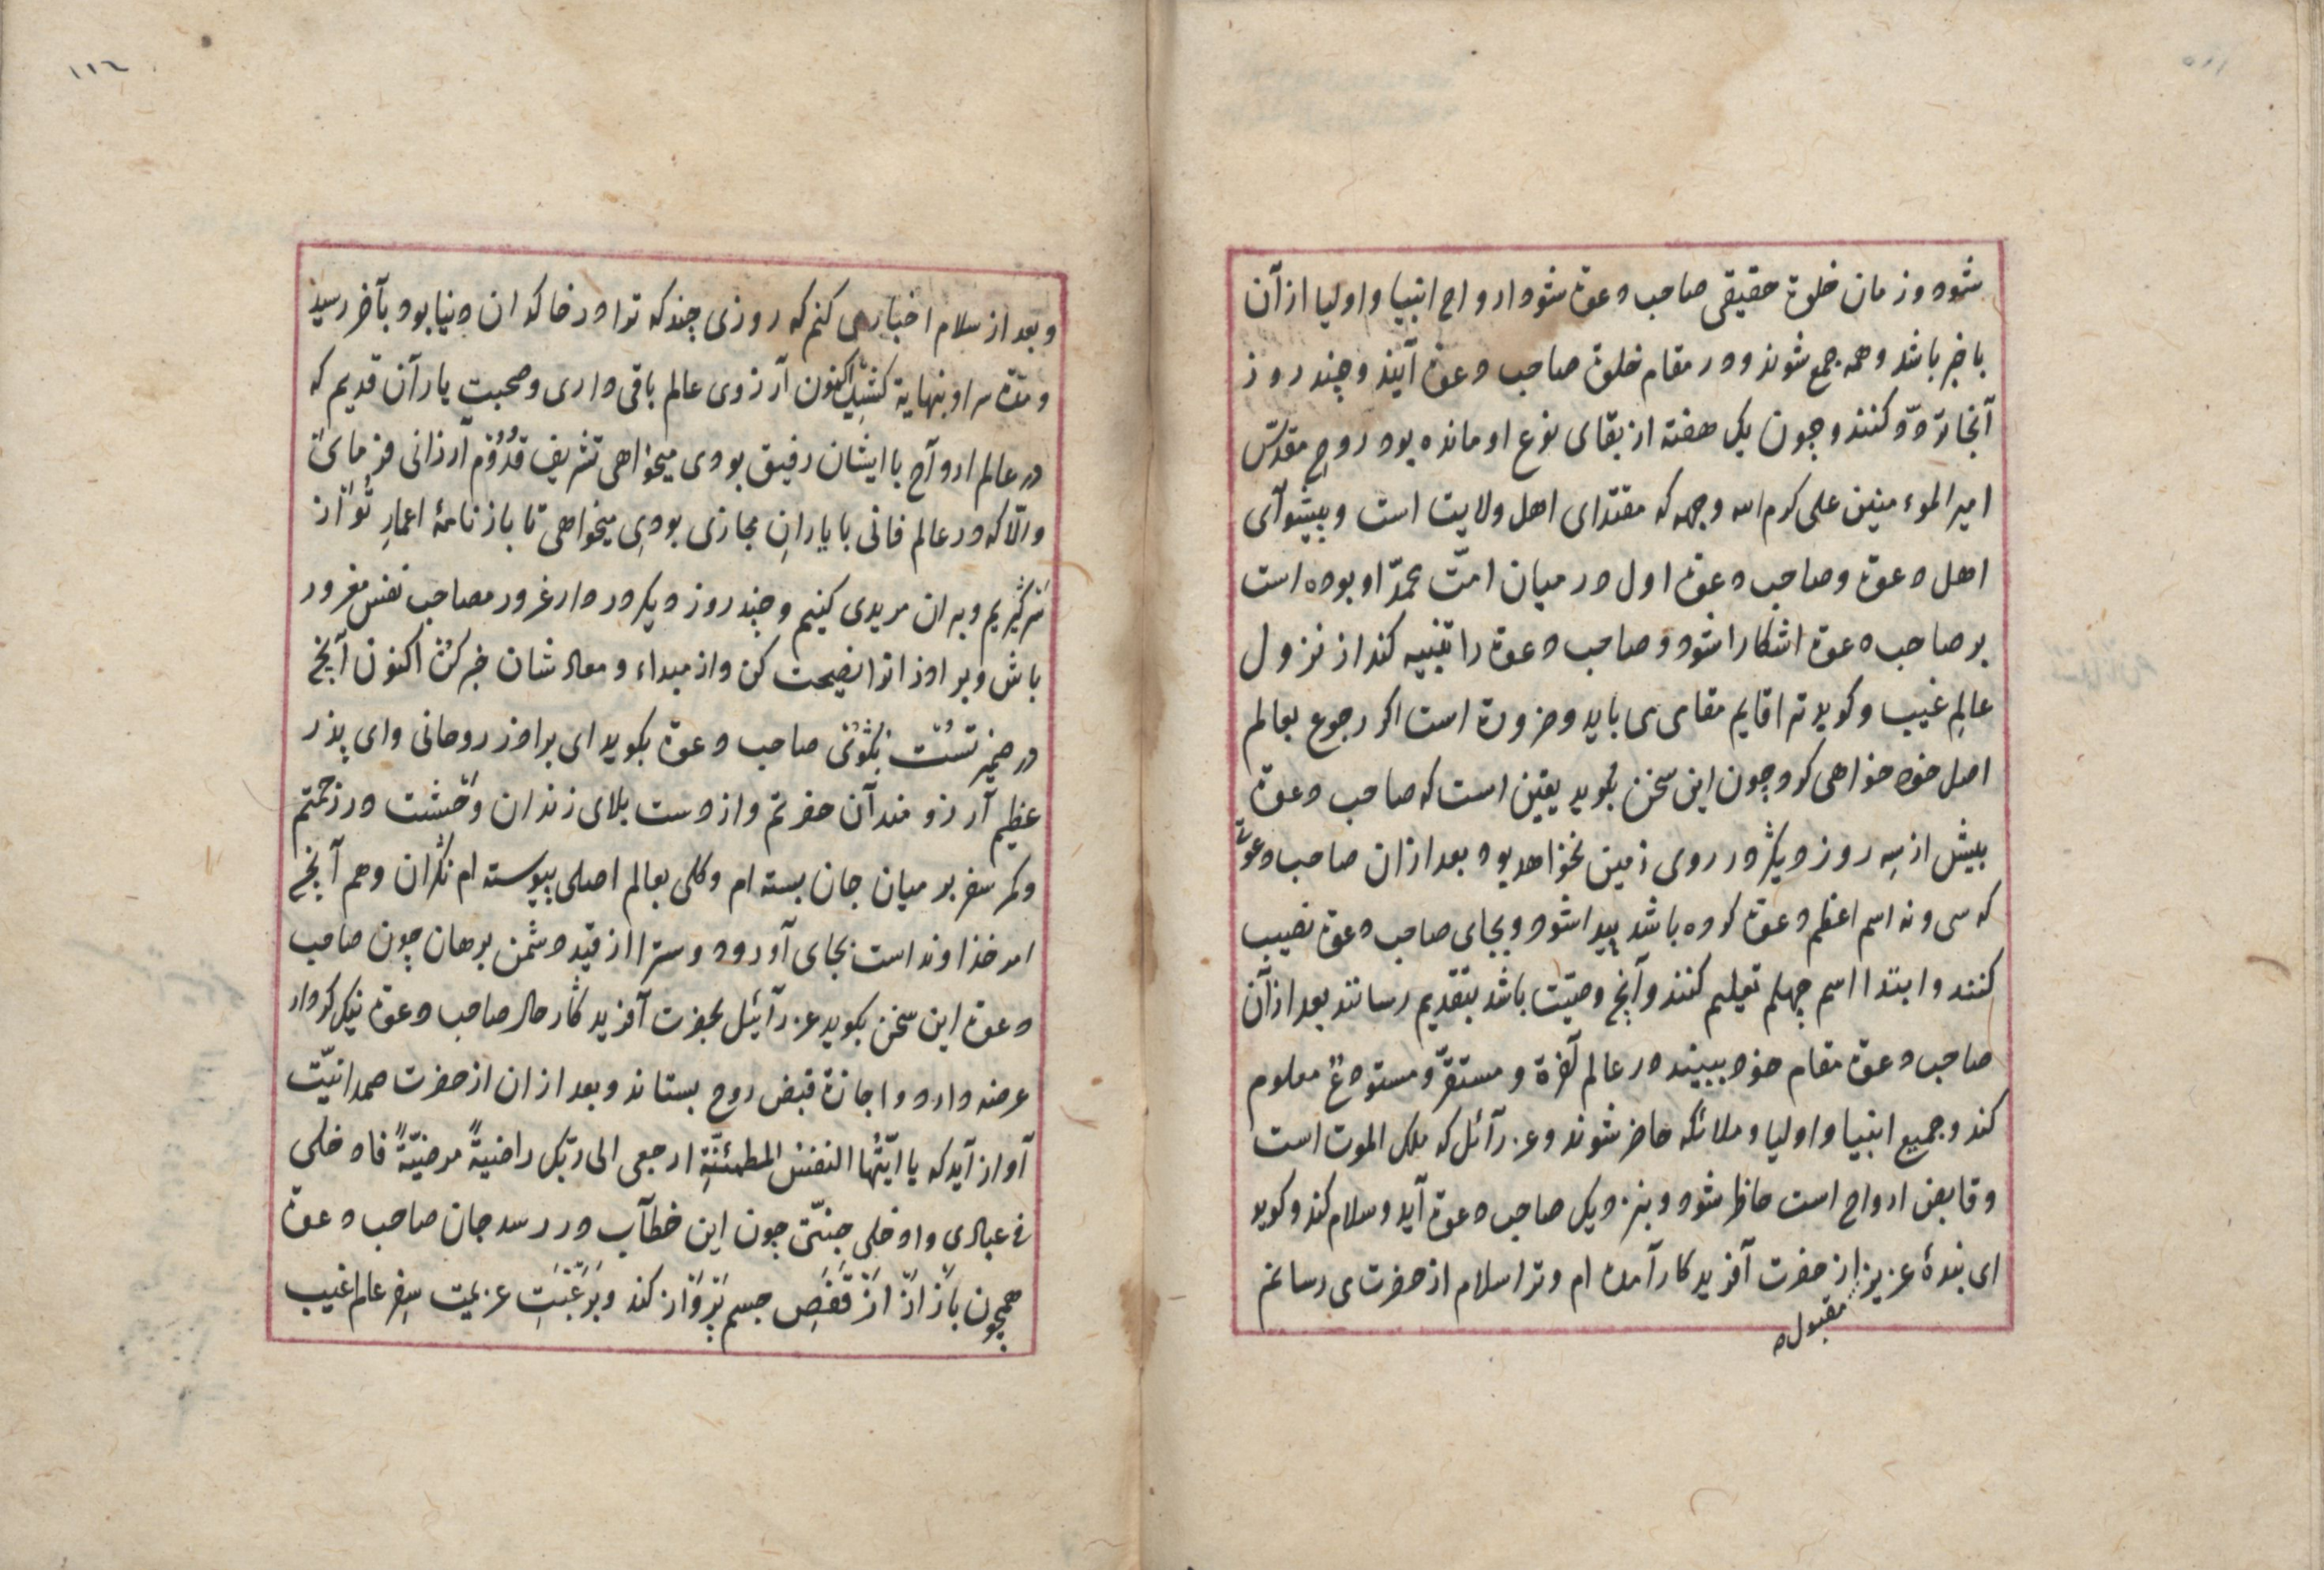 شود و زمان خلوة حقیقی صاحب دعوة شود ارواح انبیا و اولیا از آن
باخبر باشد و همه جمع شوند و در مقام خلوة صاحب دعوة آیند و چند روز
آنجا تردّد کنند و چون یک هفته از بقای نوع او مانده بود روح مقدّس
امیر الموءمنین علی کرم الله وجهه که مقتدای اهل ولایت است و پیشوآی
اهل دعوة و صاحب دعوة اول در میان امّت محمدّ او بوده است
بر صاحب دعوة اشکارا شود و صاحب دعوة را تنبیه کند از نزول
عالمِ غیب و کوید ترا قایم مقامی می باید و ضرورة است اکر رجوع بعالم
اصل خود خواهی کرد چون این سخن بکوید یقین است که صاحب دعوة
بیش از سِه روز دیکر در روی زمین نخواهد بود بعد ازان صاحب دعوت
که سی و نه اسم اعظم دعوة کرده باشد پیدا شود و بجای صاحب دعوة نصیب
کنند و ابتدا اسم چهلم تعلیم کنند و آنچ وصیّت باشد بتقدیم رسانند بعد از آن
صاحب دعوة مقام خود ببیند در عالم آخرة و مستقرّ و مستودعٌ معلوم
کند و جمیع انبیا و اولیا و ملائکه حاضر شوند و عزرآئل که ملک الموت است
و قابض ارواح است حاظر شود و بنزدیک صاحب دعوة آید و سلام کند و کوید
ای بندهٔ عزیز از حضرت آفریدکار آمده ام و ترا سلام از حضرت می رسانم
مقبوله
١١٦
و بعد از سلام اخبار می کنم که روزی چند که ترا در خاکدان دنیا بود بآخر رسید
و مدّة سرا و بنهایة کشید اکنون آرزوی عالم باقی داری و صحبت یارآن قدیم که
در عالم اروآح با ایشان رفیق بودی میخواهی تشریف قُدُوُم ارزانی فرمایٔ
والّا که در عالم فانی با یارانِ مجازی بودیِ میخواهی تا باز نامهٔ اعمارِ تُو از
سَر کَیریم و بدان مریدی کنیم و چند روز دیکر در دار غرور مصاحب نفس مغرور
باش و برادرانرا نصیحت کن و از مبداء و معاد شان خبر کن اکنون آنچ
در ضمیر تسُت بکَوُیٔ صاحب دعوة بکوید ای برادر روحانی وای پذر
عظیم آرزو مند آن حضرتم و از دست بلای زندان وحَشت در زحمتم
و کمر سفر بر میان جان بسته ام و کلی بعالم اصلی پیوسته ام نکران و هم آنچ
امر خذاوند است بجای آور و دوسترا از قید دشمن برهان چون صاحب
دعوة این سخن بکوید عزرآئیل بحضرت آفریدکار حال صاحب دعوة نیک کردار
عرضه دارد و اجازة قبض روح بستاند و بعد ازان از حضرت صمدانیّت
آواز آید که یا ایّتُها النفسُ المطمئنّةِ ارجعی الی ربّک راضیةً مرضیّةً فادخلی
فی عبادی وادخلی جنّتی چون این خطآب در رسد جان صاحب دعوة
همچون بَازْ ازْ ازْ قَفَصِ جسم پَرْوَاز کند و برَغَبَتِ عزیمت سِفر عالم غیب